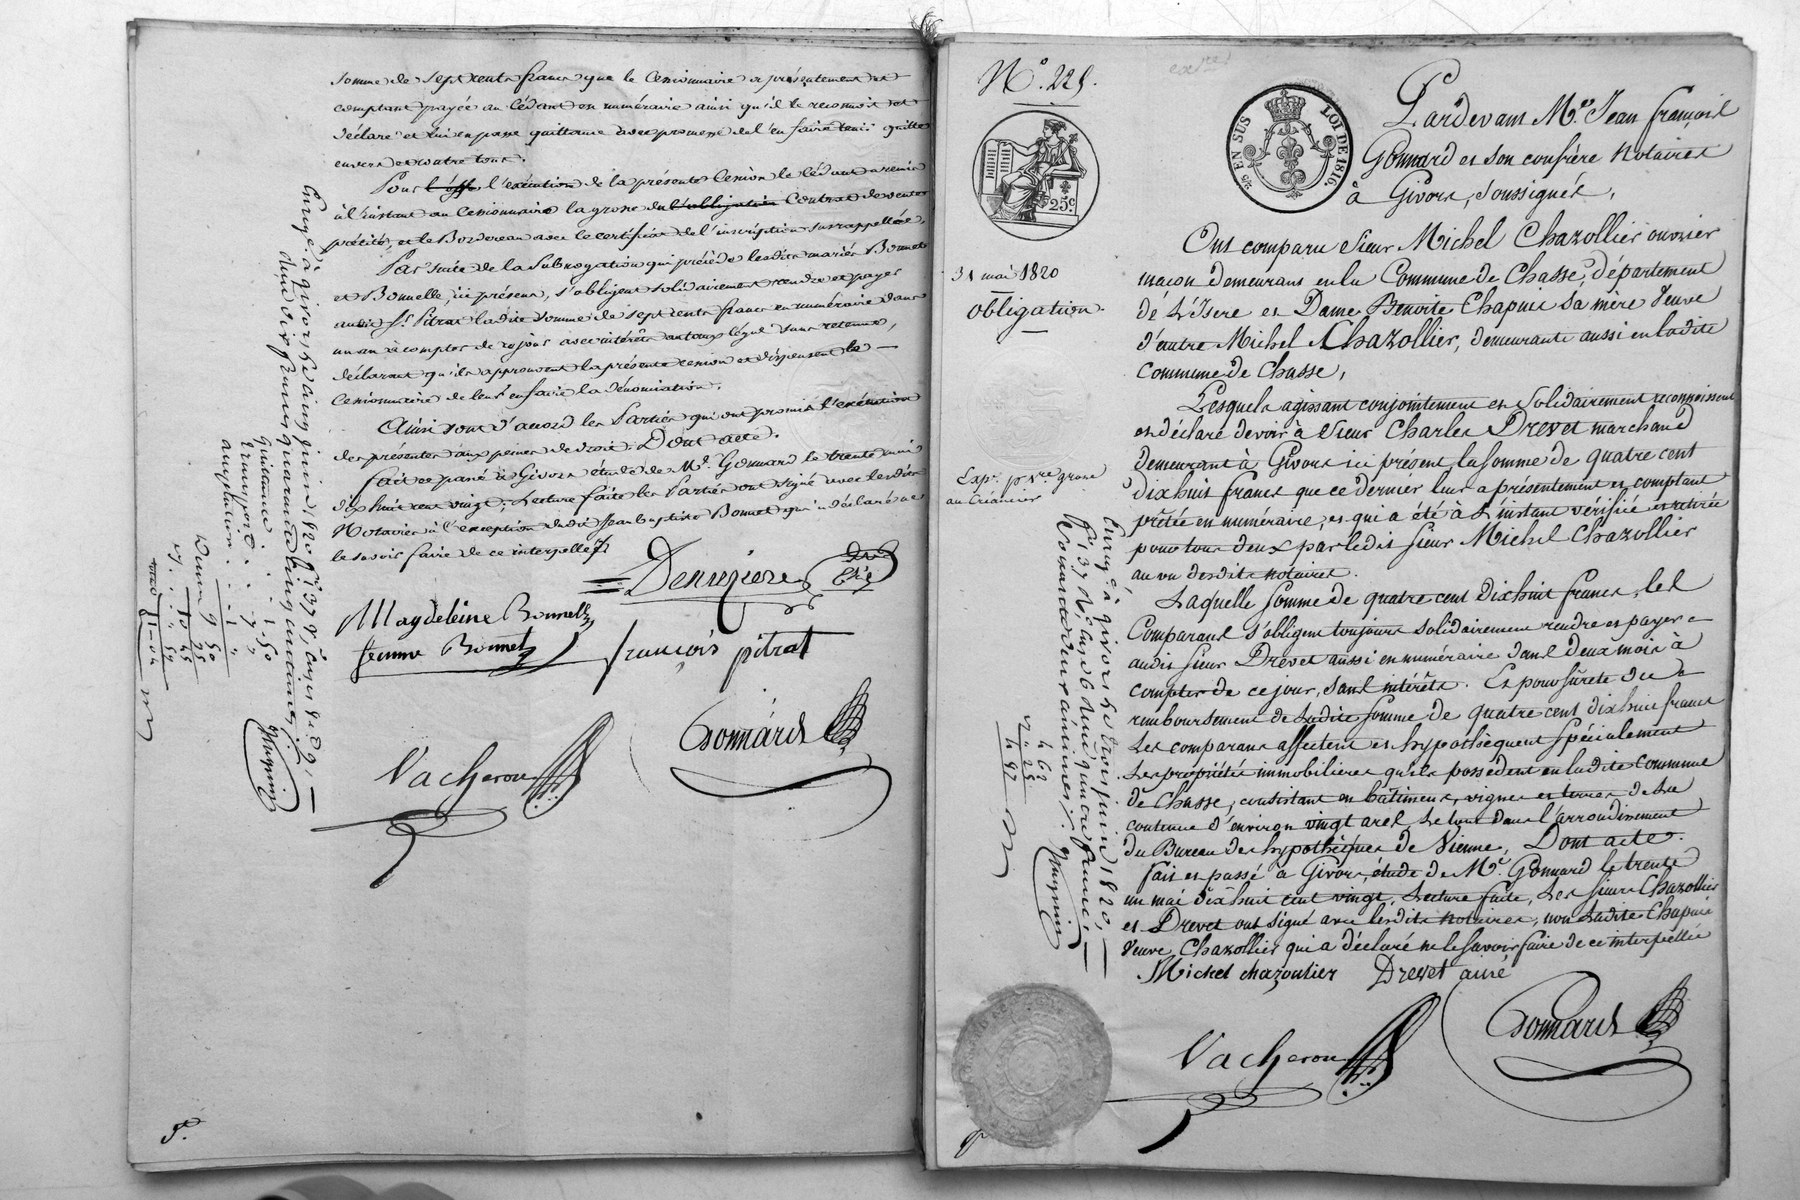 somme de sept cents francs que le Cessionnaire a présentement et
comptant payée au cédant en numéraire ainsi qu'il le reconnoit et
déclare et lui en passe quittance avec promesse de l'en faire tenir quitte
envers et contre tous.
Pour l'exécution de la présente Cession le Cédant a remis
à l'instant au Cessionnaire la grosse du l'obligation Contrat de vente
précité, et le Bordereau avec le certificat de l'inscription susrappellée,
Par suite de la Subrogation qui précéde lesdits mariés Bonnet
et Bonnelle, ici présens, s'obligent solidairement rendre et payer
audit Sr. Pitrat ladite somme de sept cents francs en numéraire dans
un an à compter de ce jour avec intérêts au taux légal sans retenue,
déclarant qu'ils approuvent la présente cession et dispensent le
Cessionnaire de leur en faire la dénonciation.
Ainsi sont d'accord les Parties qui ont promis l'exécution
des présentes aux peines de droit. Dont acte.
fait et passé à Givors étude de Me. Gonnard le trente mai
dix huit cent vingt. Lecture faite les Parties ont signé avec lesdits
Notaires à l'exception dudit Jean Baptiste Bonnet qui a déclaré ne
le savoir faire de ce interpellé
Magdeleine Bonnelle
femme Bonnet
françois pitrat
Vacheron
Gonnard
Enregé. à givors le cinq juin 1820 fo. 37 Vo.
N°. 225.
EN SUS
LOI DE 1816.
25c
31 mai 1820
Obligation
Expn. pre. grosse
au Créancier
Pardevant Me. Jean françois
Gonnard et son confrère Notaires
à Givors, soussignés,
Ont comparu Sieur Michel Chazollier ouvrier
maçon demeurant en la Commune de Chasse, département
de L'Isere et Dame Benoite Chapuis sa mère Veuve
d'autre Michel Chazollier, demeurante aussi en ladite
Commune de Chasse,
Lesquels agissant conjointement et Solidairement reconnoissent
et déclare devoir à Sieur Charles Drevet marchand
demeurant à Givors ici présent, la somme de quatre cent
dixhuit francs que ce dernier leur a présentement et comptant
prêtée en numéraire, et qui a été à L'instant vérifiée et retirée
pour tous deux par ledit Sieur Michel Chazollier
au vu desdits notaires.
Laquelle somme de quatre cent dixhuit francs, les
Comparans s'obligent toujours solidairement rendre et payer
audit Sieur Drevet aussi en numéraire dans deux mois à
compter de ce jour, sans intérêts. Et pour sûreté du
remboursement de ladite somme de quatre cent dixhuit francs
Les comparans affectent et hypothèquent spécialement
Les propriétés immobilières qu'ils possèdent en ladite Commune
de Chasse, consistant en bâtimens, vignes et terres de la
contenue d'environ vingt ares Le tout dans l'arrondissement
du Bureau des hypothèques de Vienne, Dont acte.
fait et passé à Givors, étude de Me. Gonnard le trente
un mai dixhuit cent vingt, Lecture faite, Les Sieurs Chazollier
et Drevet ont signé avec lesdits notaires, non Ladite Chapuis
Veuve Chazollier qui a déclaré ne le savoir faire de ce interpellée
Michel chazoulier Drevet ainé
Vacheron
Gonnard
Enregé. à givors le trois juin 1820,
4 62
25
4 97